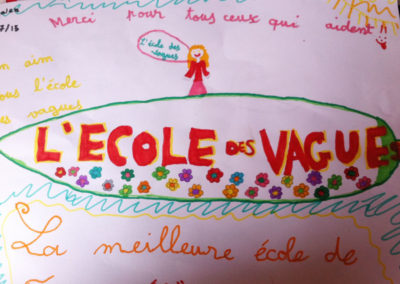 Merci pour tous ceux qui aident !!
7/13
L'école des
vagues
on aim
tous l'école
des vagues
L'ECOLE DES VAGUES
La meilleure école de